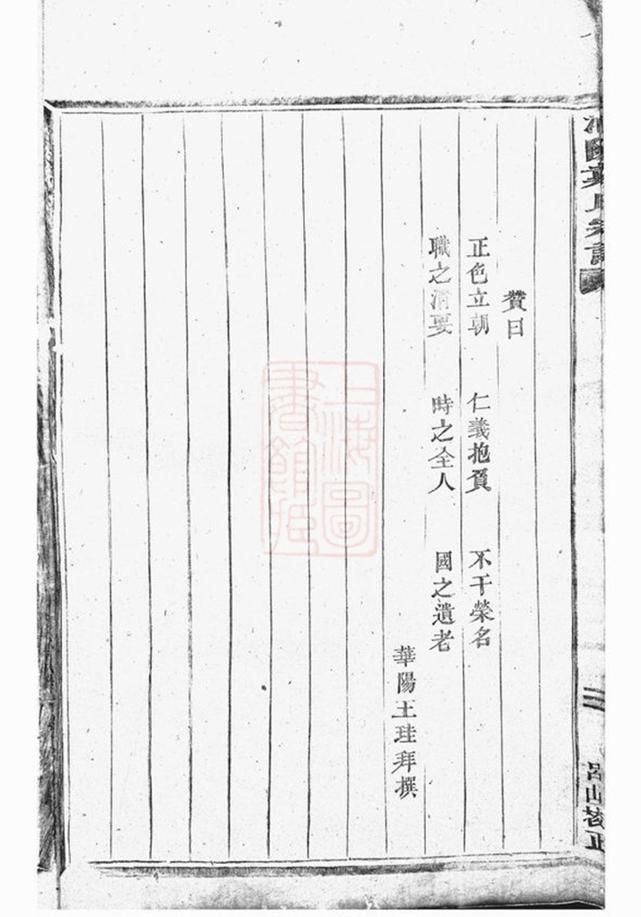 氏宗譜
山校正
贊曰
正色立朝 仁義抱負 不干榮名
職之清要 時之全人 國之遺老
華陽王珪拜撰
上海圖
書館藏